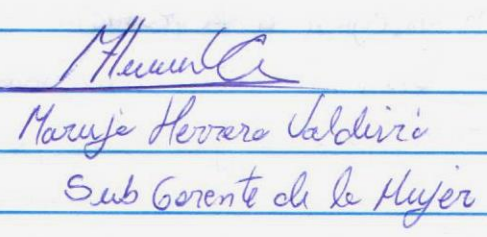 Maruja Herrera Valdivia
Sub Gerente de la Mujer